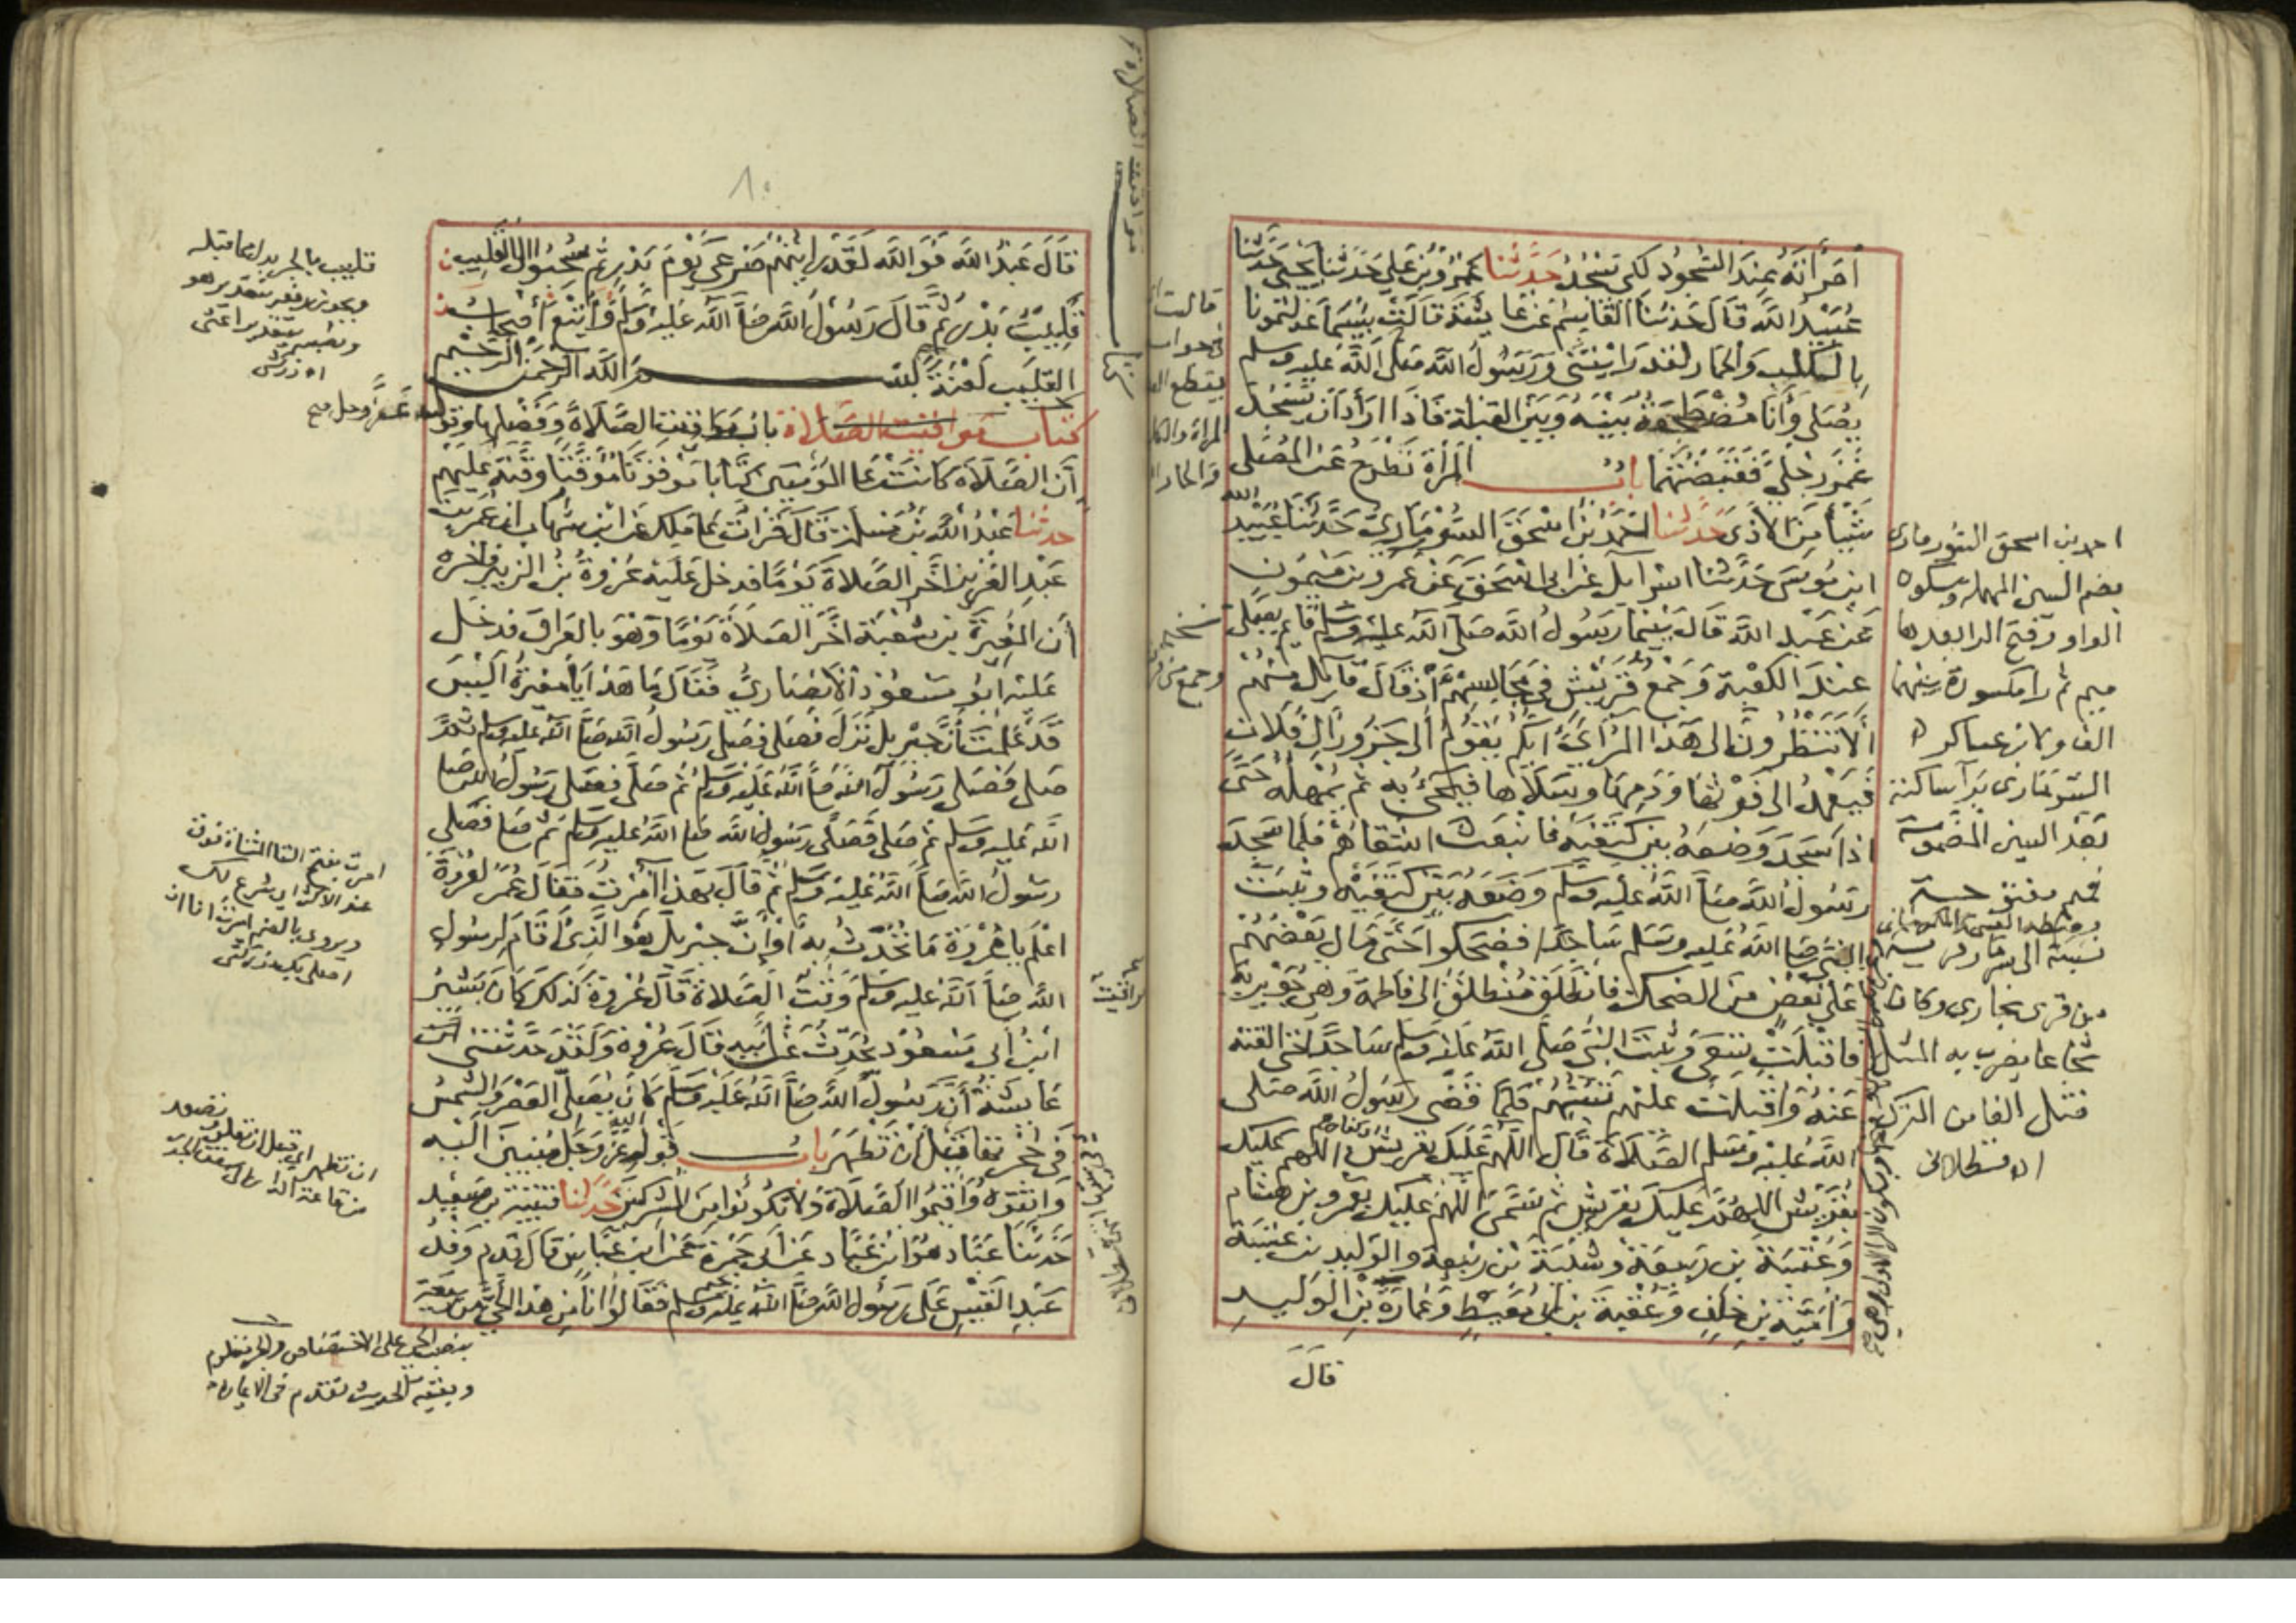 امرأته عند السجود لكي يسجد حدثنا عمرو بن علي حدثنا يحيى حدثنا
عبيد الله قال حدثنا القاسم عن عائشة قالت بئسما عدلتمونا
بالكلب والحمار لقد رايتني ورسول الله صلى الله عليه وسلم
يصلي وأنا مضطجعة بينه وبين القبلة فاذا اراد ان يسجد
غمز رجلي فقبضتهما باب المرأة تطرح عن المصلي
شيئا من الاذى حدثنا احمد بن اسحق السورماري حدثنا عبيد الله
ابن موسى حدثنا اسرايل عن ابى اسحق عن عمرو بن ميمون
عن عبد الله قال بينما رسول الله صلى الله عليه وسلم قايم يصلي
عند الكعبة وجمع قريش في مجالسهم اذ قال قايل منهم
ألا تنظرون الى هذا المرائي ايكم يقوم الى جزور ال فلان
فيعمد الى فرثها ودمها وسلاها فيجئ به ثم يمهله حتى
اذا سجد وضعه بين كتفيه فانبعث اشقاهم فلما سجد
رسول الله صلى الله عليه وسلم وضعه بين كتفيه وثبت
النبي صلى الله عليه وسلم ساجدا فضحكوا حتى مال بعضهم
على بعض من الضحك فانطلق منطلق الى فاطمة وهي جويرية
فاقبلت تسعى وثبت النبي صلى الله عليه وسلم ساجدا حتى القته
عنه واقبلت عليهم تسبهم فلما قضى رسول الله صلى
الله عليه وسلم الصلاة قال اللهم عليك بقريش اللهم عليك
بقريش اللهم عليك بقريش ثم سمى اللهم عليك بعمرو بن هشام
وعتبة بن ربيعة وشيبة بن ربيعة والوليد بن عتبة
وأمية بن خلف وعقبة بن ابي معيط وعمارة بن الوليد
قال
احمد بن اسحق السورماري
بضم السين المهملة وسكون
الواو وفتح الرا بعدها
ميم ثم را مكسورة بينهما
الف ولابن عساكر
السرماري برآ ساكنة
بعد السين المضمومة
نسبة الى سرمارى قرية
من قرى بخارى وكان
شجاعا يضرب به المثل
قتل الفا من الترك
اه قسطلانى
قال عبد الله فوالله لقد رايتهم صرعى يوم بدر ثم سحبوا الى القليب
قليب بدر ثم قال رسول الله صلى الله عليه وسلم وأتبع أصحاب
القليب لعنة بسم الله الرحمن الرحيم
كتاب مواقيت الصلاة باب مواقيت الصلاة وفضلها وقوله عز وجل
ان الصلاة كانت على المؤمنين كتابا موقوتا موقتا وقته عليهم
حدثنا عبد الله بن مسلمة قال قرات على مالك عن ابن شهاب ان عمر بن
عبد العزيز اخر الصلاة يوما فدخل عليه عروة بن الزبير فاخبره
أن المغيرة بن شعبة اخر الصلاة يوما وهو بالعراق فدخل
عليه ابو مسعود الانصاري فقال ما هذا يا مغيرة أليس
قد علمت أن جبريل نزل فصلى فصلى رسول الله صلى الله عليه وسلم ثم
صلى فصلى رسول الله صلى الله عليه وسلم ثم صلى فصلى رسول الله صلى
الله عليه وسلم ثم صلى فصلى رسول الله صلى الله عليه وسلم ثم صلى فصلى
رسول الله صلى الله عليه وسلم ثم قال بهذا أمرت فقال عمر لعروة
اعلم يا عروة ما تحدث به أو أن جبريل هو الذي أقام لرسول
الله صلى الله عليه وسلم وقت الصلاة قال عروة كذلك كان بشير
ابن أبي مسعود يحدث عن أبيه قال عروة ولقد حدثتني
عايشة أن رسول الله صلى الله عليه وسلم كان يصلي العصر والشمس
في حجرتها قبل أن تظهر باب قول الله عز وجل منيبين اليه
واتقوه وأقيموا الصلاة ولا تكونوا من المشركين حدثنا قتيبة بن سعيد
حدثنا عباد هو ابن عباد عن ابي جمرة عن ابن عباس قال قدم وفد
عبد القيس على رسول الله صلى الله عليه وسلم فقالوا انا من هذا الحي من ربيعة
قليب بالجر بدل مما قبله
ويجوز رفعه بتقدير هو
ونصبه بتقدير اعنى
اه زركشى
امرت بفتح التا المثناة فوق
عند الاكثر اي شرع لك
ويروى بالضم امرت انا ان
اصلى بك زركشى
بنصب الحي على الاختصاص
وبقية الحديث تقدم فى الايمان